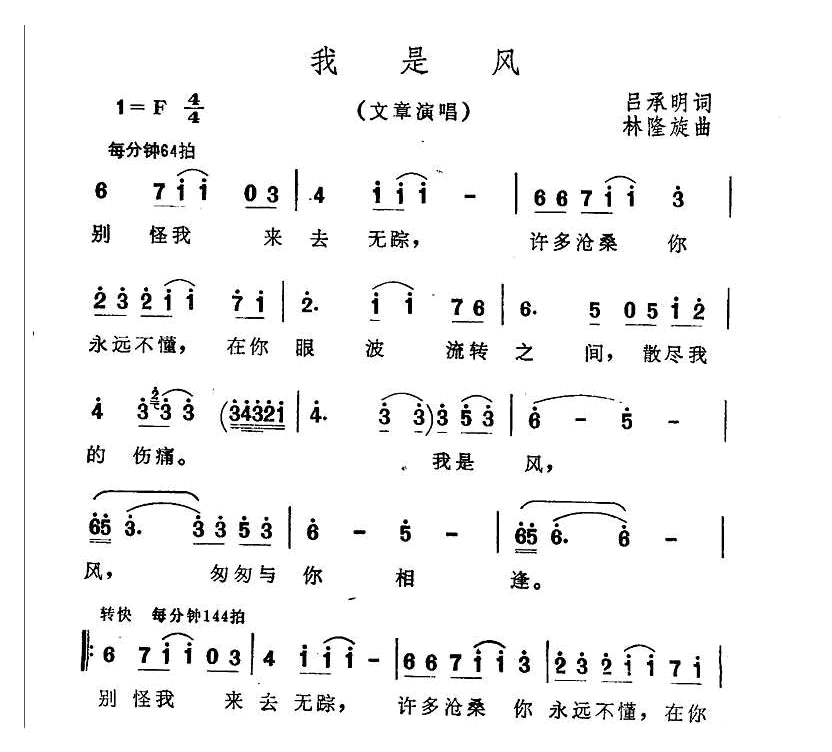 我 是 风
1=F 4/4
(文章演唱)
吕承明词
林隆旋曲
每分钟64拍
6 7 i i 0 3 | 4 i i i - | 6 6 7 i i 3 |
别 怪我 来 去 无踪， 许多沧桑 你
2 3 2 i i 7 i | 2. i i 7 6 | 6. 5 0 5 i 2 |
永远不懂， 在你 眼 波 流转 之 间， 散尽我
4 3 2 3 3 (3 4 3 2 i | 4. 3 3) 3 5 3 | 6 - 5 - |
的 伤痛。 我是 风，
6 5 3. 3 3 5 3 | 6 - 5 - | 6 5 6. 6 - |
风， 匆匆与 你 相 逢。
转快 每分钟144拍
‖: 6 7 i i 0 3 | 4 i i i - | 6 6 7 i i 3 | 2 3 2 i i 7 i |
别 怪我 来 去 无踪， 许多沧桑 你 永远不懂， 在你